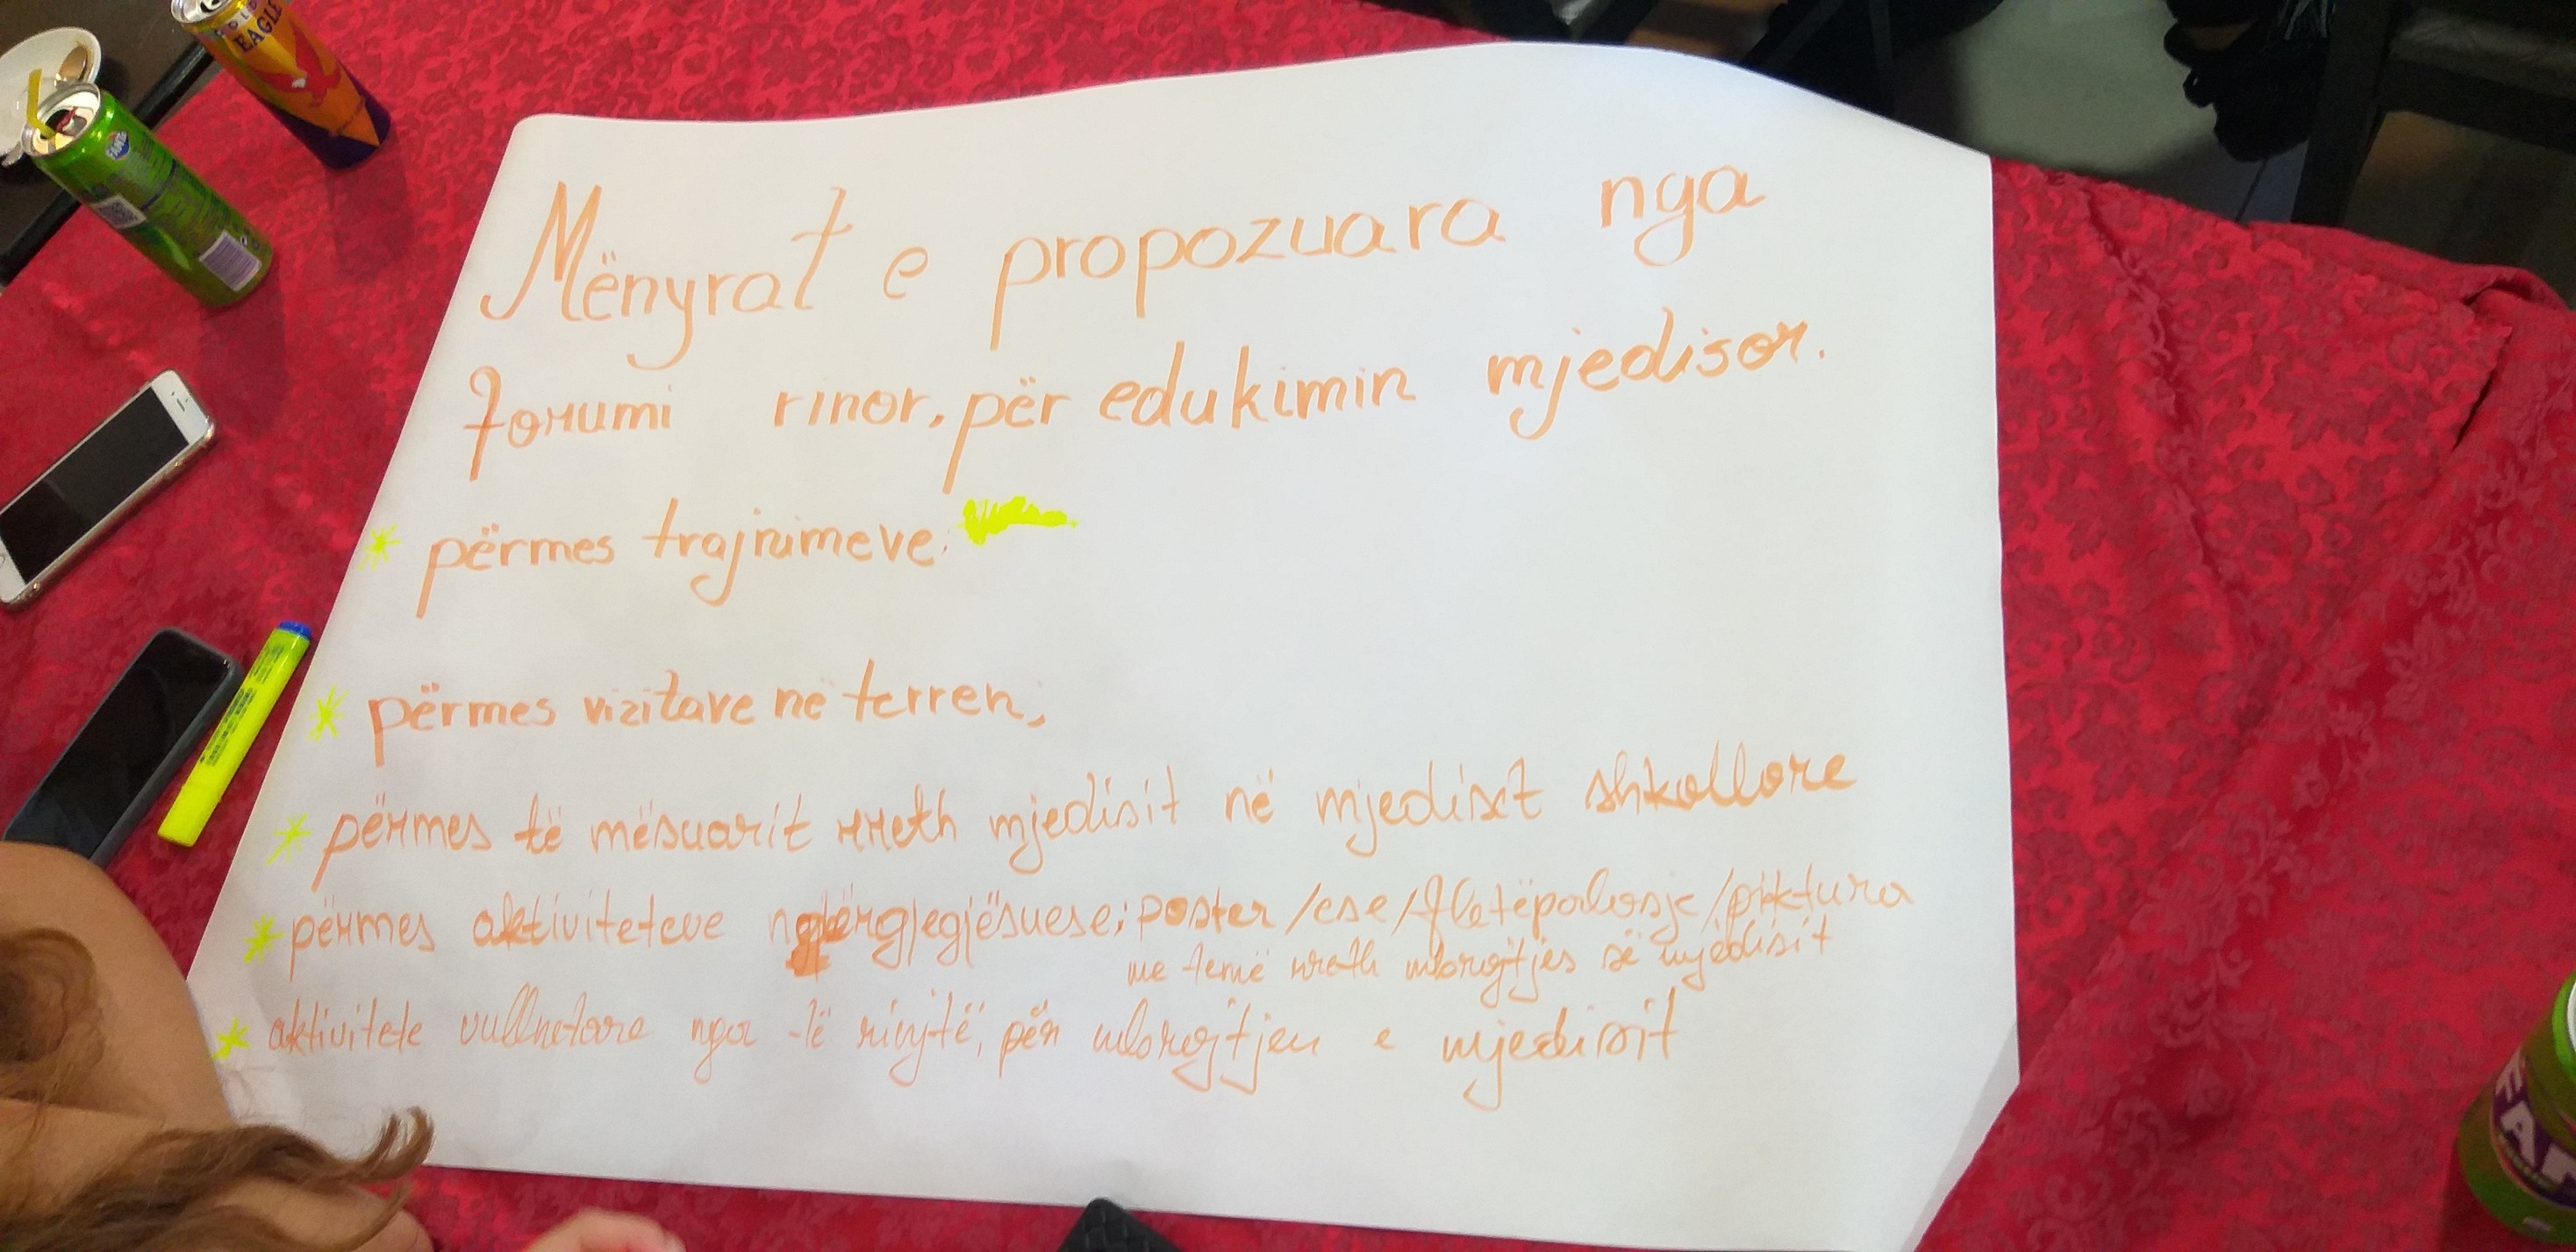 Mënyrat e propozuara nga
forumi rinor, për edukimin mjedisor.
* përmes trajnimeve.
* përmes vizitave në terren,
* përmes të mësuarit rreth mjedisit në mjedisit shkollore
* përmes aktiviteteve ndërgjegjësuese; poster /ese/fletëpalosje/piktura
me temë rreth mbrojtjes së mjedisit
* aktivitete vullnetare nga të rinjtë, për mbrojtjen e mjedisit
EAGLE
FANTA